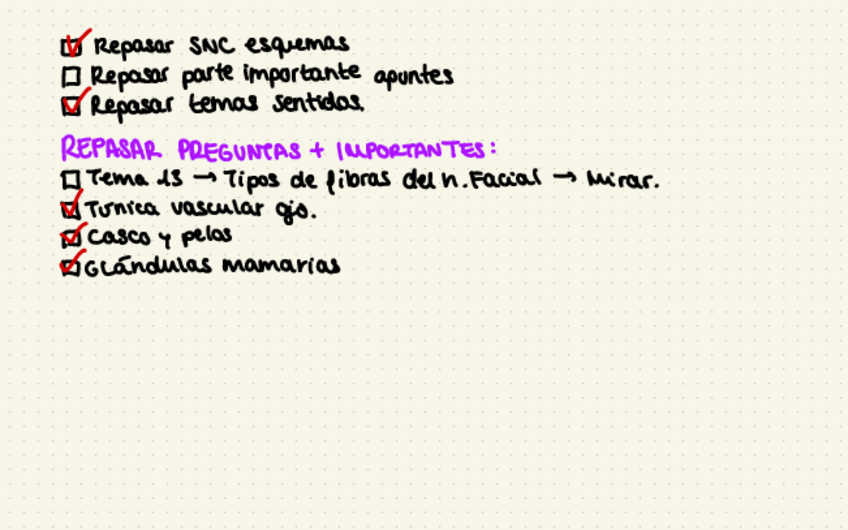 Repasar SNC esquemas
Repasar parte importante apuntes
Repasar temas sentidos.
REPASAR PREGUNTAS + IMPORTANTES:
Tema 13 → Tipos de fibras del n. Facial → Mirar.
Túnica vascular ojo.
Casco y pelos
Glándulas mamarias